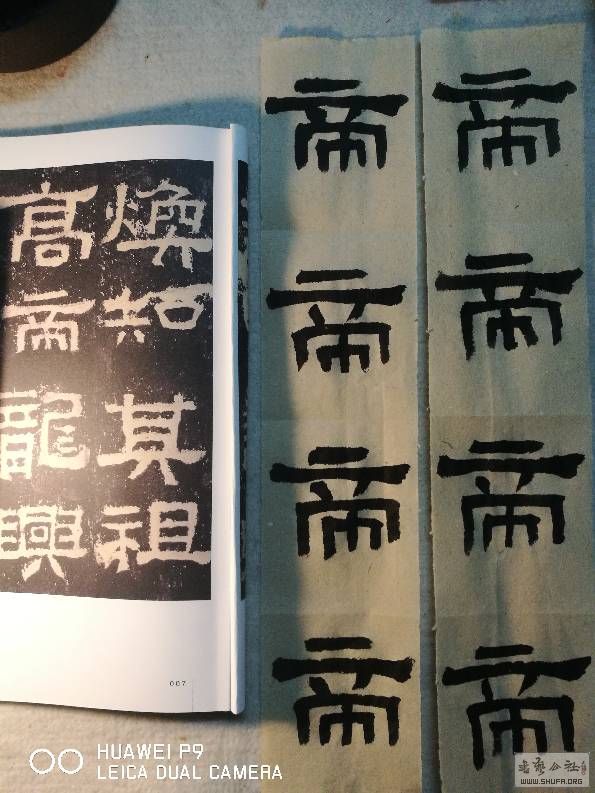 煥知其祖
高帝龍興
007
帝帝帝帝
帝帝帝帝
HUAWEI P9
LEICA DUAL CAMERA
WWW.SHUFA.ORG